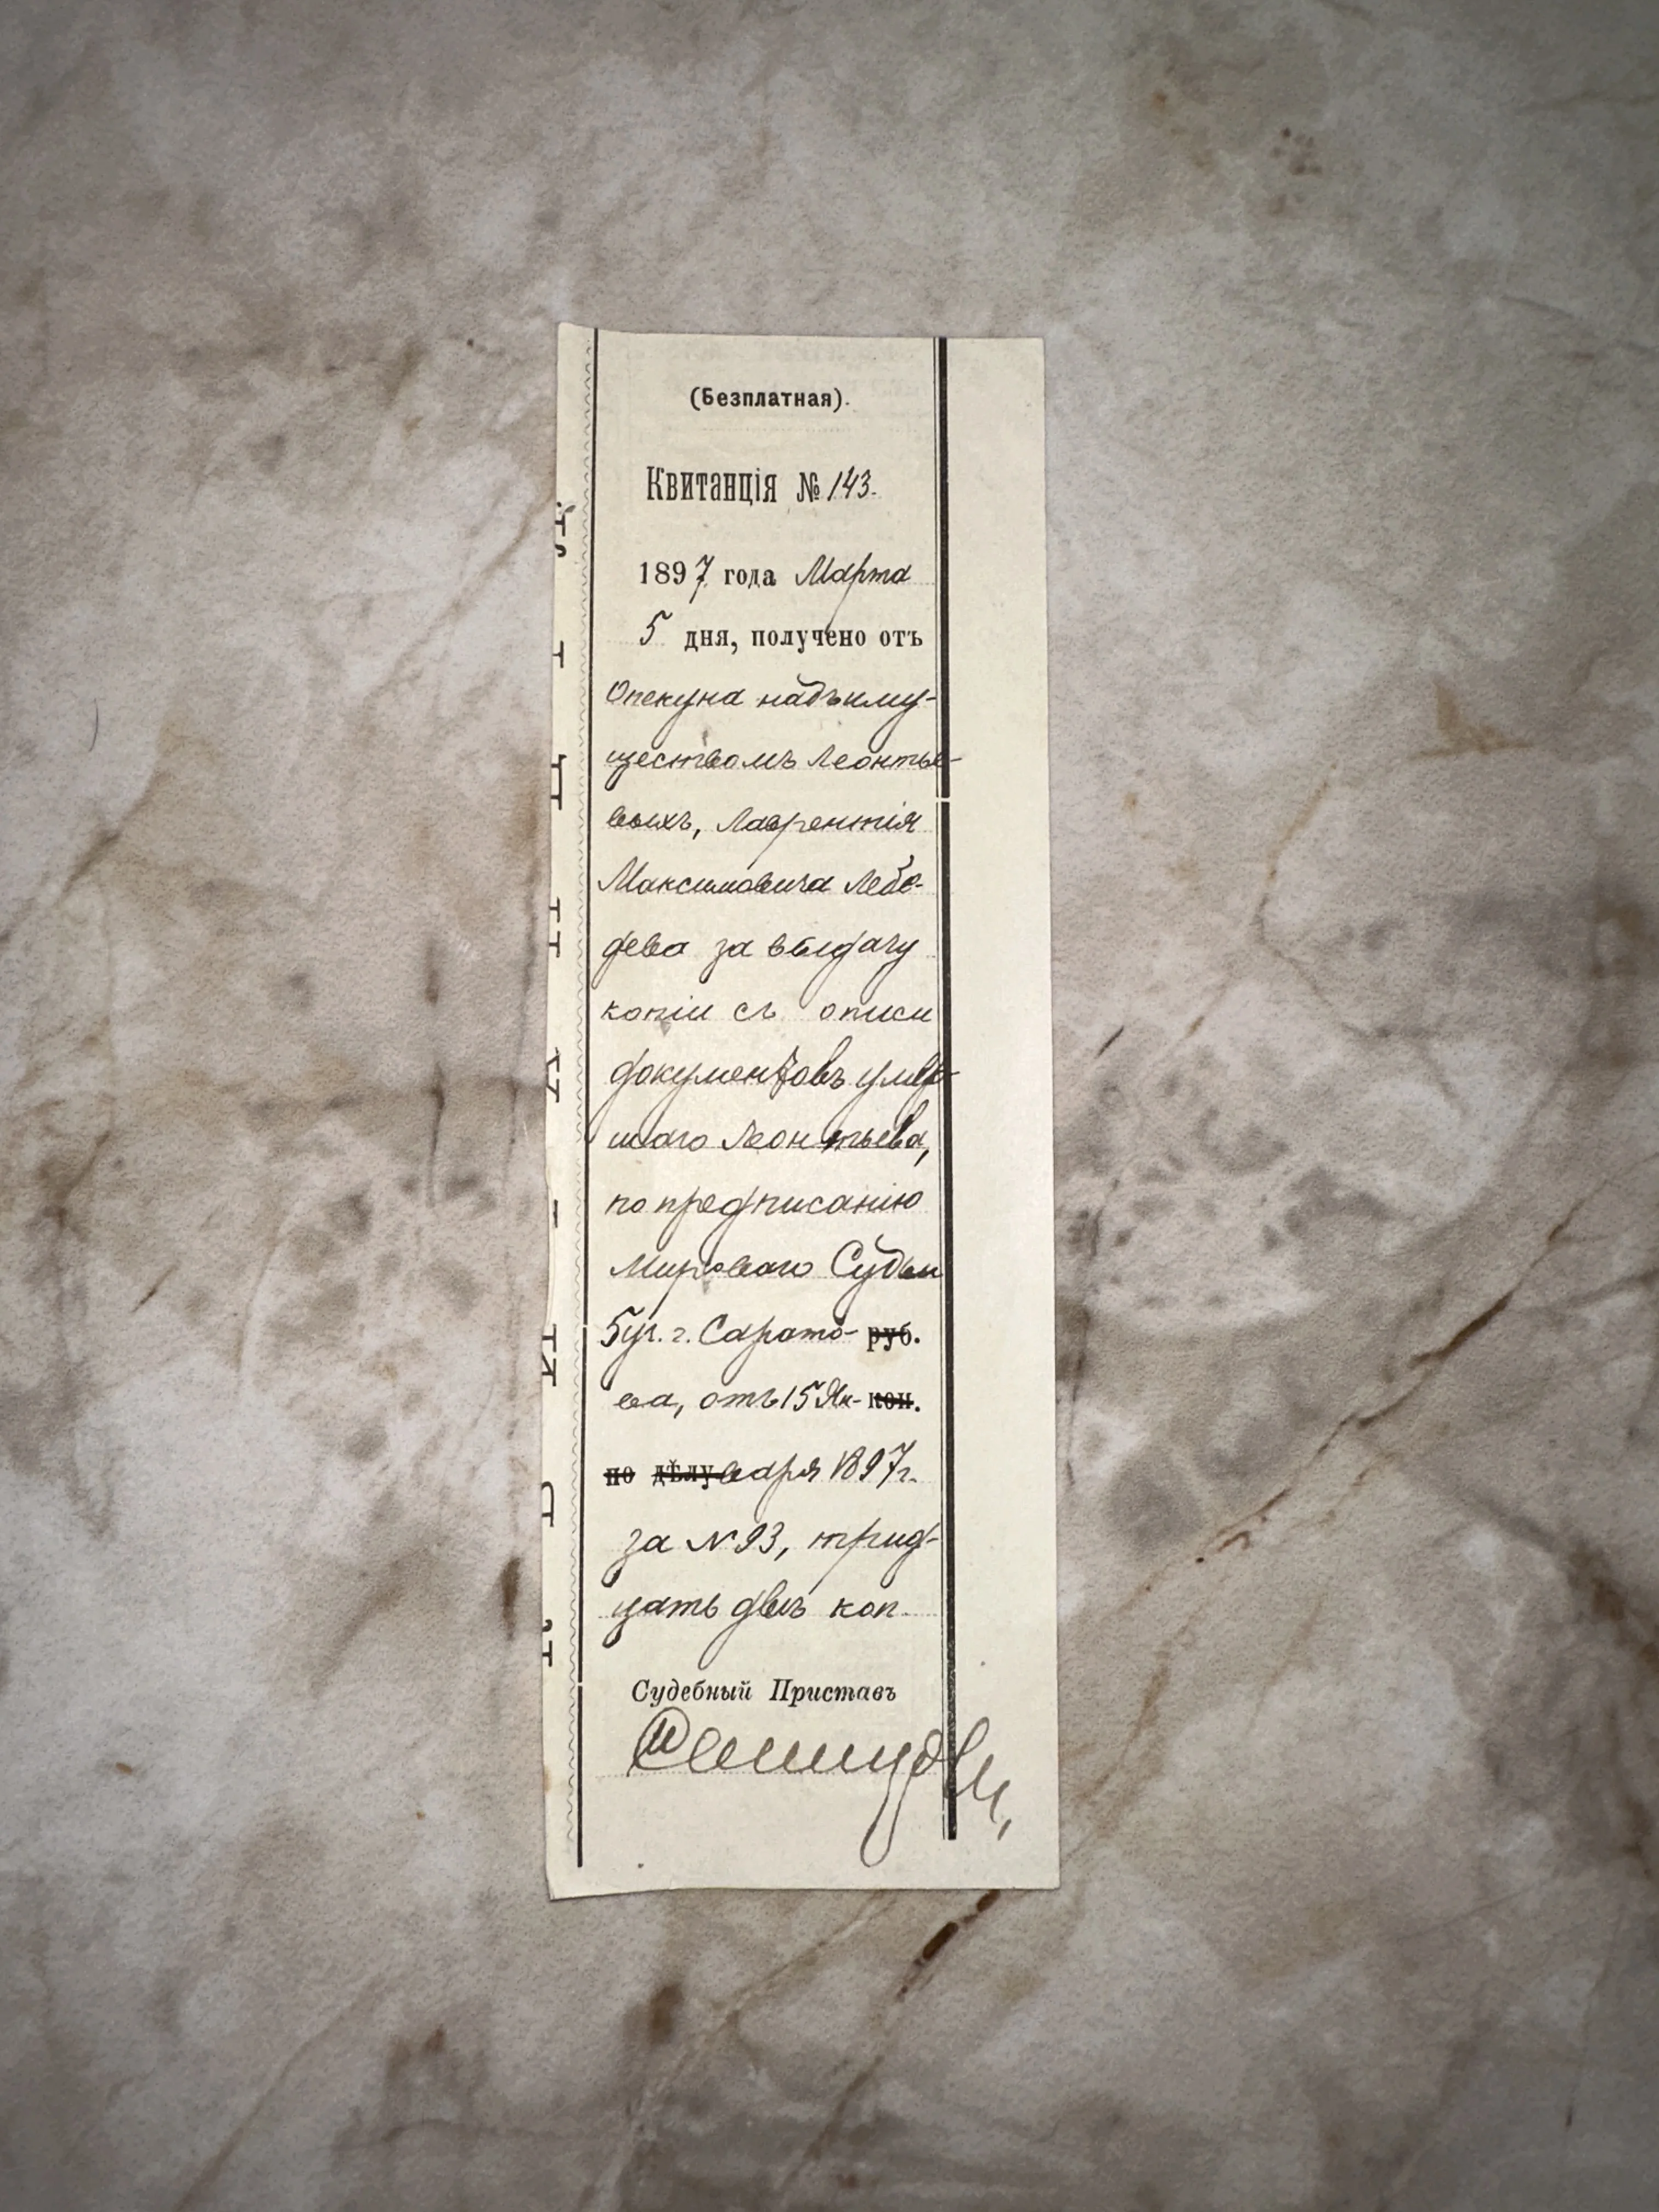 (Безплатная).
Квитанція № 143.
1897 года Марта
5 дня, получено отъ
Опекуна надъ иму-
ществомъ Леонтье-
выхъ, Лаврентія
Максимовича Лебе-
дева за выдачу
копіи съ описи
документовъ умер-
шаго Леонтьева,
по предписанію
Мироваго Судьи
5 уч. г. Сарато- руб.
ва, отъ 15 Ян- коп.
по дѣлу варя 1897 г.
за № 93, трид-
цать двѣ коп.
Судебный Приставъ